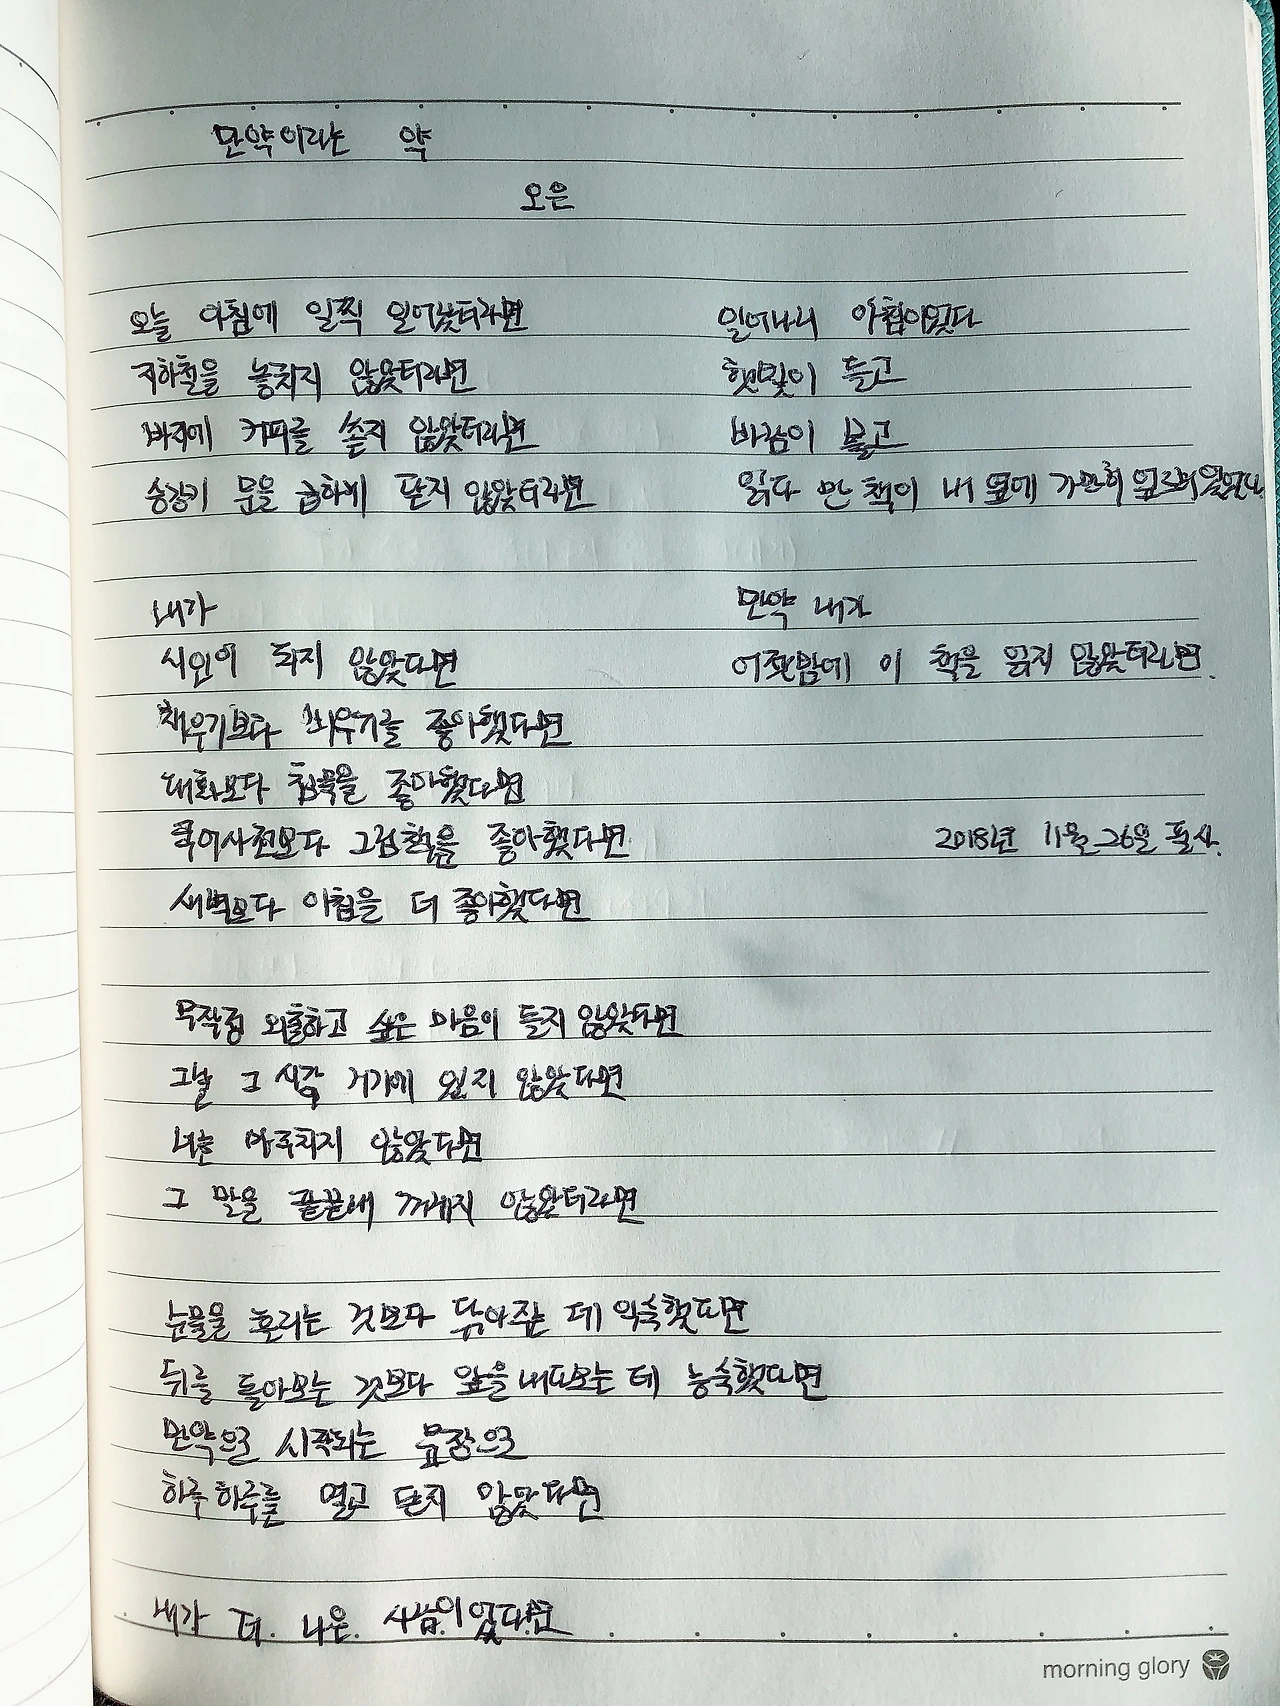 만약이라는 약
오은
오늘 아침에 일찍 일어났더라면
지하철을 놓치지 않았더라면
바지에 커피를 쏟지 않았더라면
승강기 문을 급하게 닫지 않았더라면
내가
시인이 되지 않았다면
채우기보다 비우기를 좋아했다면
대화보다 침묵을 좋아했다면
국어사전보다 그림책을 좋아했다면
새벽보다 아침을 더 좋아했다면
무작정 외출하고 싶은 마음이 들지 않았다면
그날 그 시각 거기에 있지 않았다면
너를 마주치지 않았다면
그 말을 끝끝내 꺼내지 않았더라면
눈물을 흘리는 것보다 닦아주는 데 익숙했다면
뒤를 돌아보는 것보다 앞을 내다보는 데 능숙했다면
만약으로 시작되는 문장으로
하루하루를 열고 닫지 않았다면
내가 더 나은 사람이었다면
일어나니 아침이었다
햇빛이 들고
바람이 불고
읽다 만 책이 내 옆에 가만히 엎드려 있었다
만약 내가
어젯밤에 이 책을 읽지 않았더라면.
2018년 11월 26일 필사.
morning glory